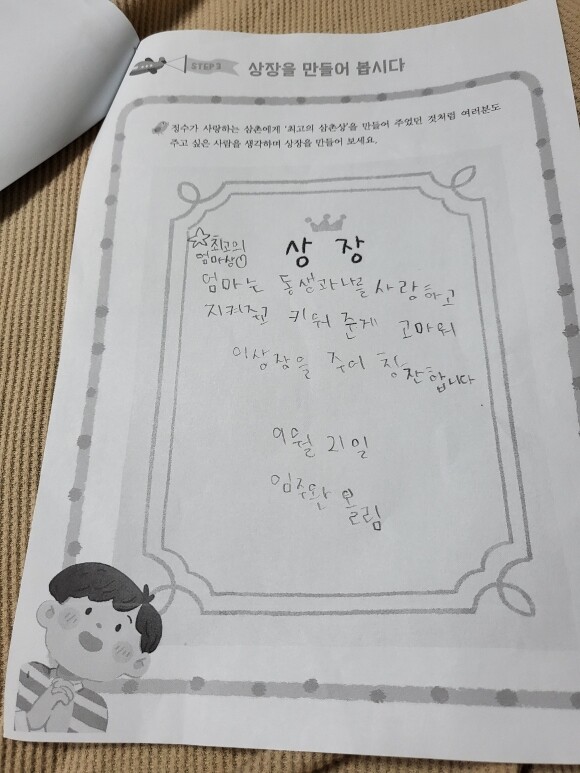 STEP3 상장을 만들어 봅시다
정수가 사랑하는 삼촌에게 '최고의 삼촌상'을 만들어 주었던 것처럼 여러분도
주고 싶은 사람을 생각하며 상장을 만들어 보세요.
최고의
엄마상
상 장
엄마는 동생과나를 사랑하고
지켜주고 키워 준게 고마워
이상장을 주어 칭찬합니다
9월 21일
임주완 올림